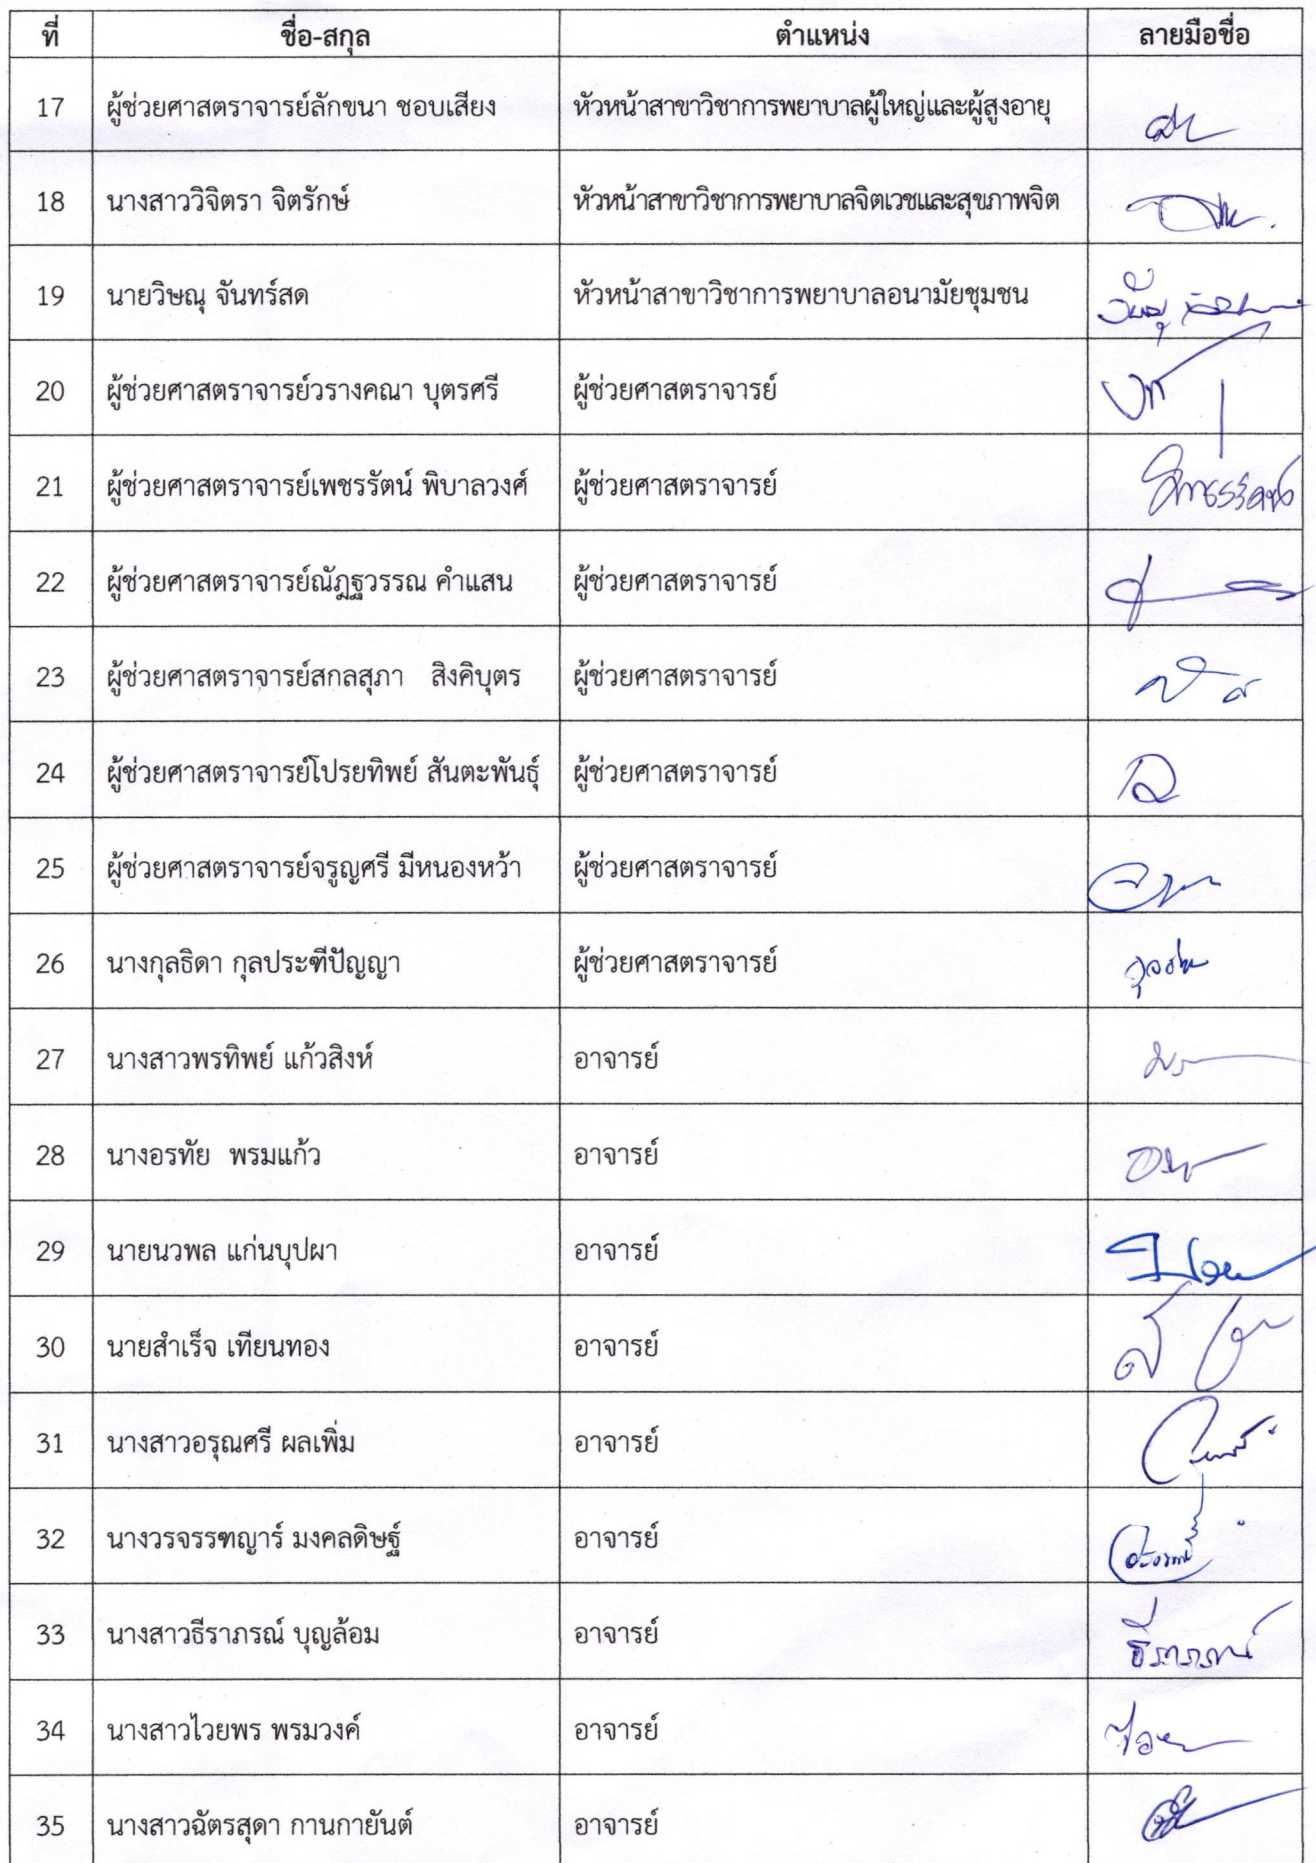 ที่ ชื่อ-สกุล ตำแหน่ง ลายมือชื่อ
17 ผู้ช่วยศาสตราจารย์ลักขนา ชอบเสียง หัวหน้าสาขาวิชาการพยาบาลผู้ใหญ่และผู้สูงอายุ
18 นางสาววิจิตรา จิตรักษ์ หัวหน้าสาขาวิชาการพยาบาลจิตเวชและสุขภาพจิต
19 นายวิษณุ จันทร์สด หัวหน้าสาขาวิชาการพยาบาลอนามัยชุมชน
20 ผู้ช่วยศาสตราจารย์วรางคณา บุตรศรี ผู้ช่วยศาสตราจารย์
21 ผู้ช่วยศาสตราจารย์เพชรรัตน์ พิบาลวงศ์ ผู้ช่วยศาสตราจารย์
22 ผู้ช่วยศาสตราจารย์ณัฎฐวรรณ คำแสน ผู้ช่วยศาสตราจารย์
23 ผู้ช่วยศาสตราจารย์สกลสุภา สิงคิบุตร ผู้ช่วยศาสตราจารย์
24 ผู้ช่วยศาสตราจารย์โปรยทิพย์ สันตะพันธุ์ ผู้ช่วยศาสตราจารย์
25 ผู้ช่วยศาสตราจารย์จรูญศรี มีหนองหว้า ผู้ช่วยศาสตราจารย์
26 นางกุลธิดา กุลประฑีปัญญา ผู้ช่วยศาสตราจารย์
27 นางสาวพรทิพย์ แก้วสิงห์ อาจารย์
28 นางอรทัย พรมแก้ว อาจารย์
29 นายนวพล แก่นบุปผา อาจารย์
30 นายสำเร็จ เทียนทอง อาจารย์
31 นางสาวอรุณศรี ผลเพิ่ม อาจารย์
32 นางวรจรรฑญาร์ มงคลดิษฐ์ อาจารย์
33 นางสาวธีราภรณ์ บุญล้อม อาจารย์ ธีราภรณ์
34 นางสาวไวยพร พรมวงค์ อาจารย์
35 นางสาวฉัตรสุดา กานกายันต์ อาจารย์